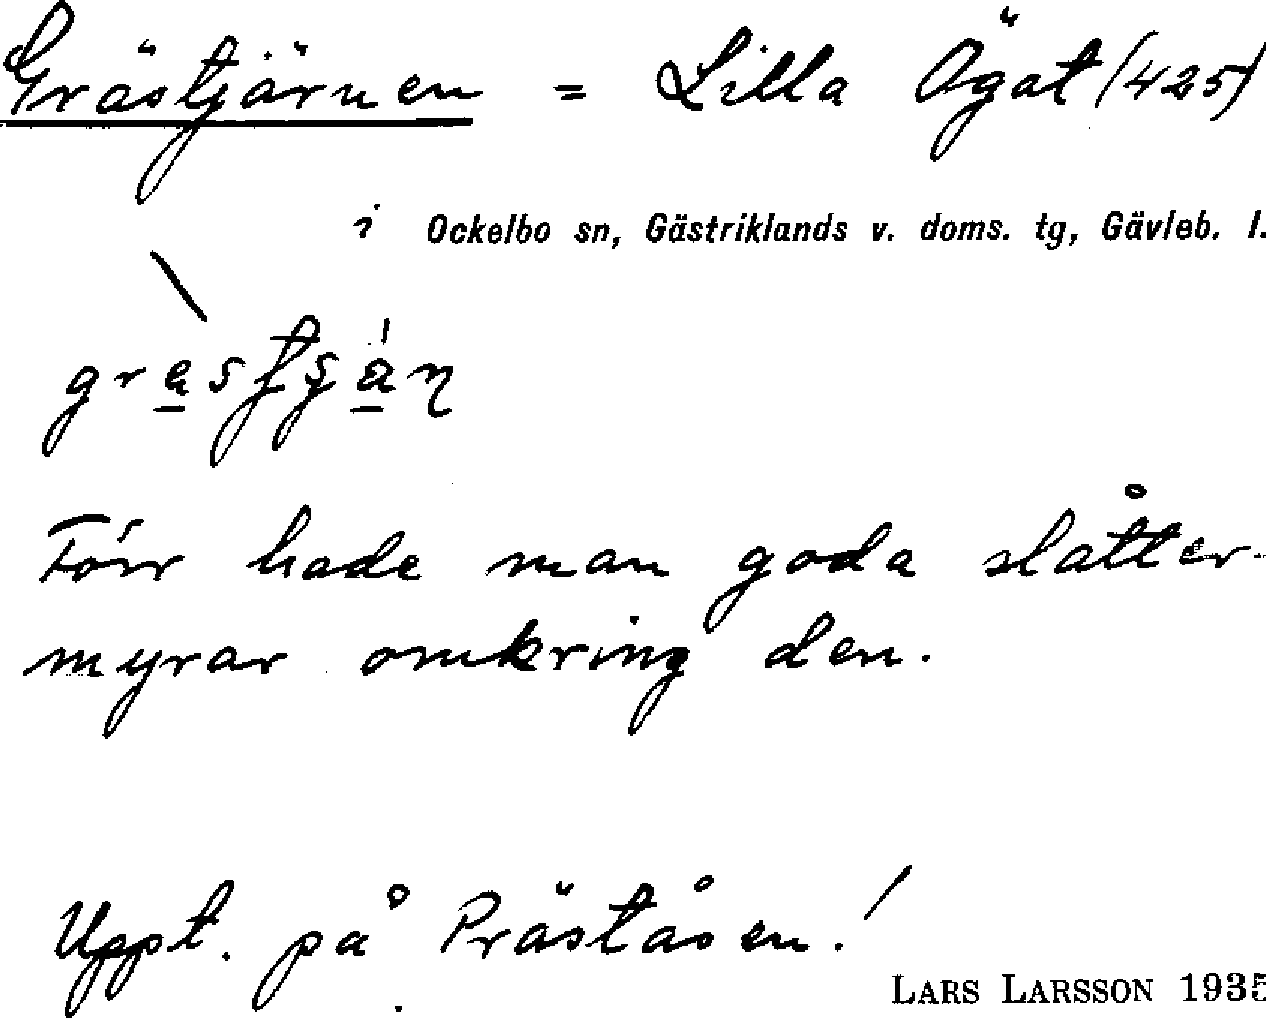 Grästjärnen = Lilla Ögat (425)
i Ockelbo sn, Gästriklands v. doms. tg, Gävleb. l.
Förr hade man goda slåtter-
myrar omkring den.
Uppt. på Präståsen!
LARS LARSSON 1935